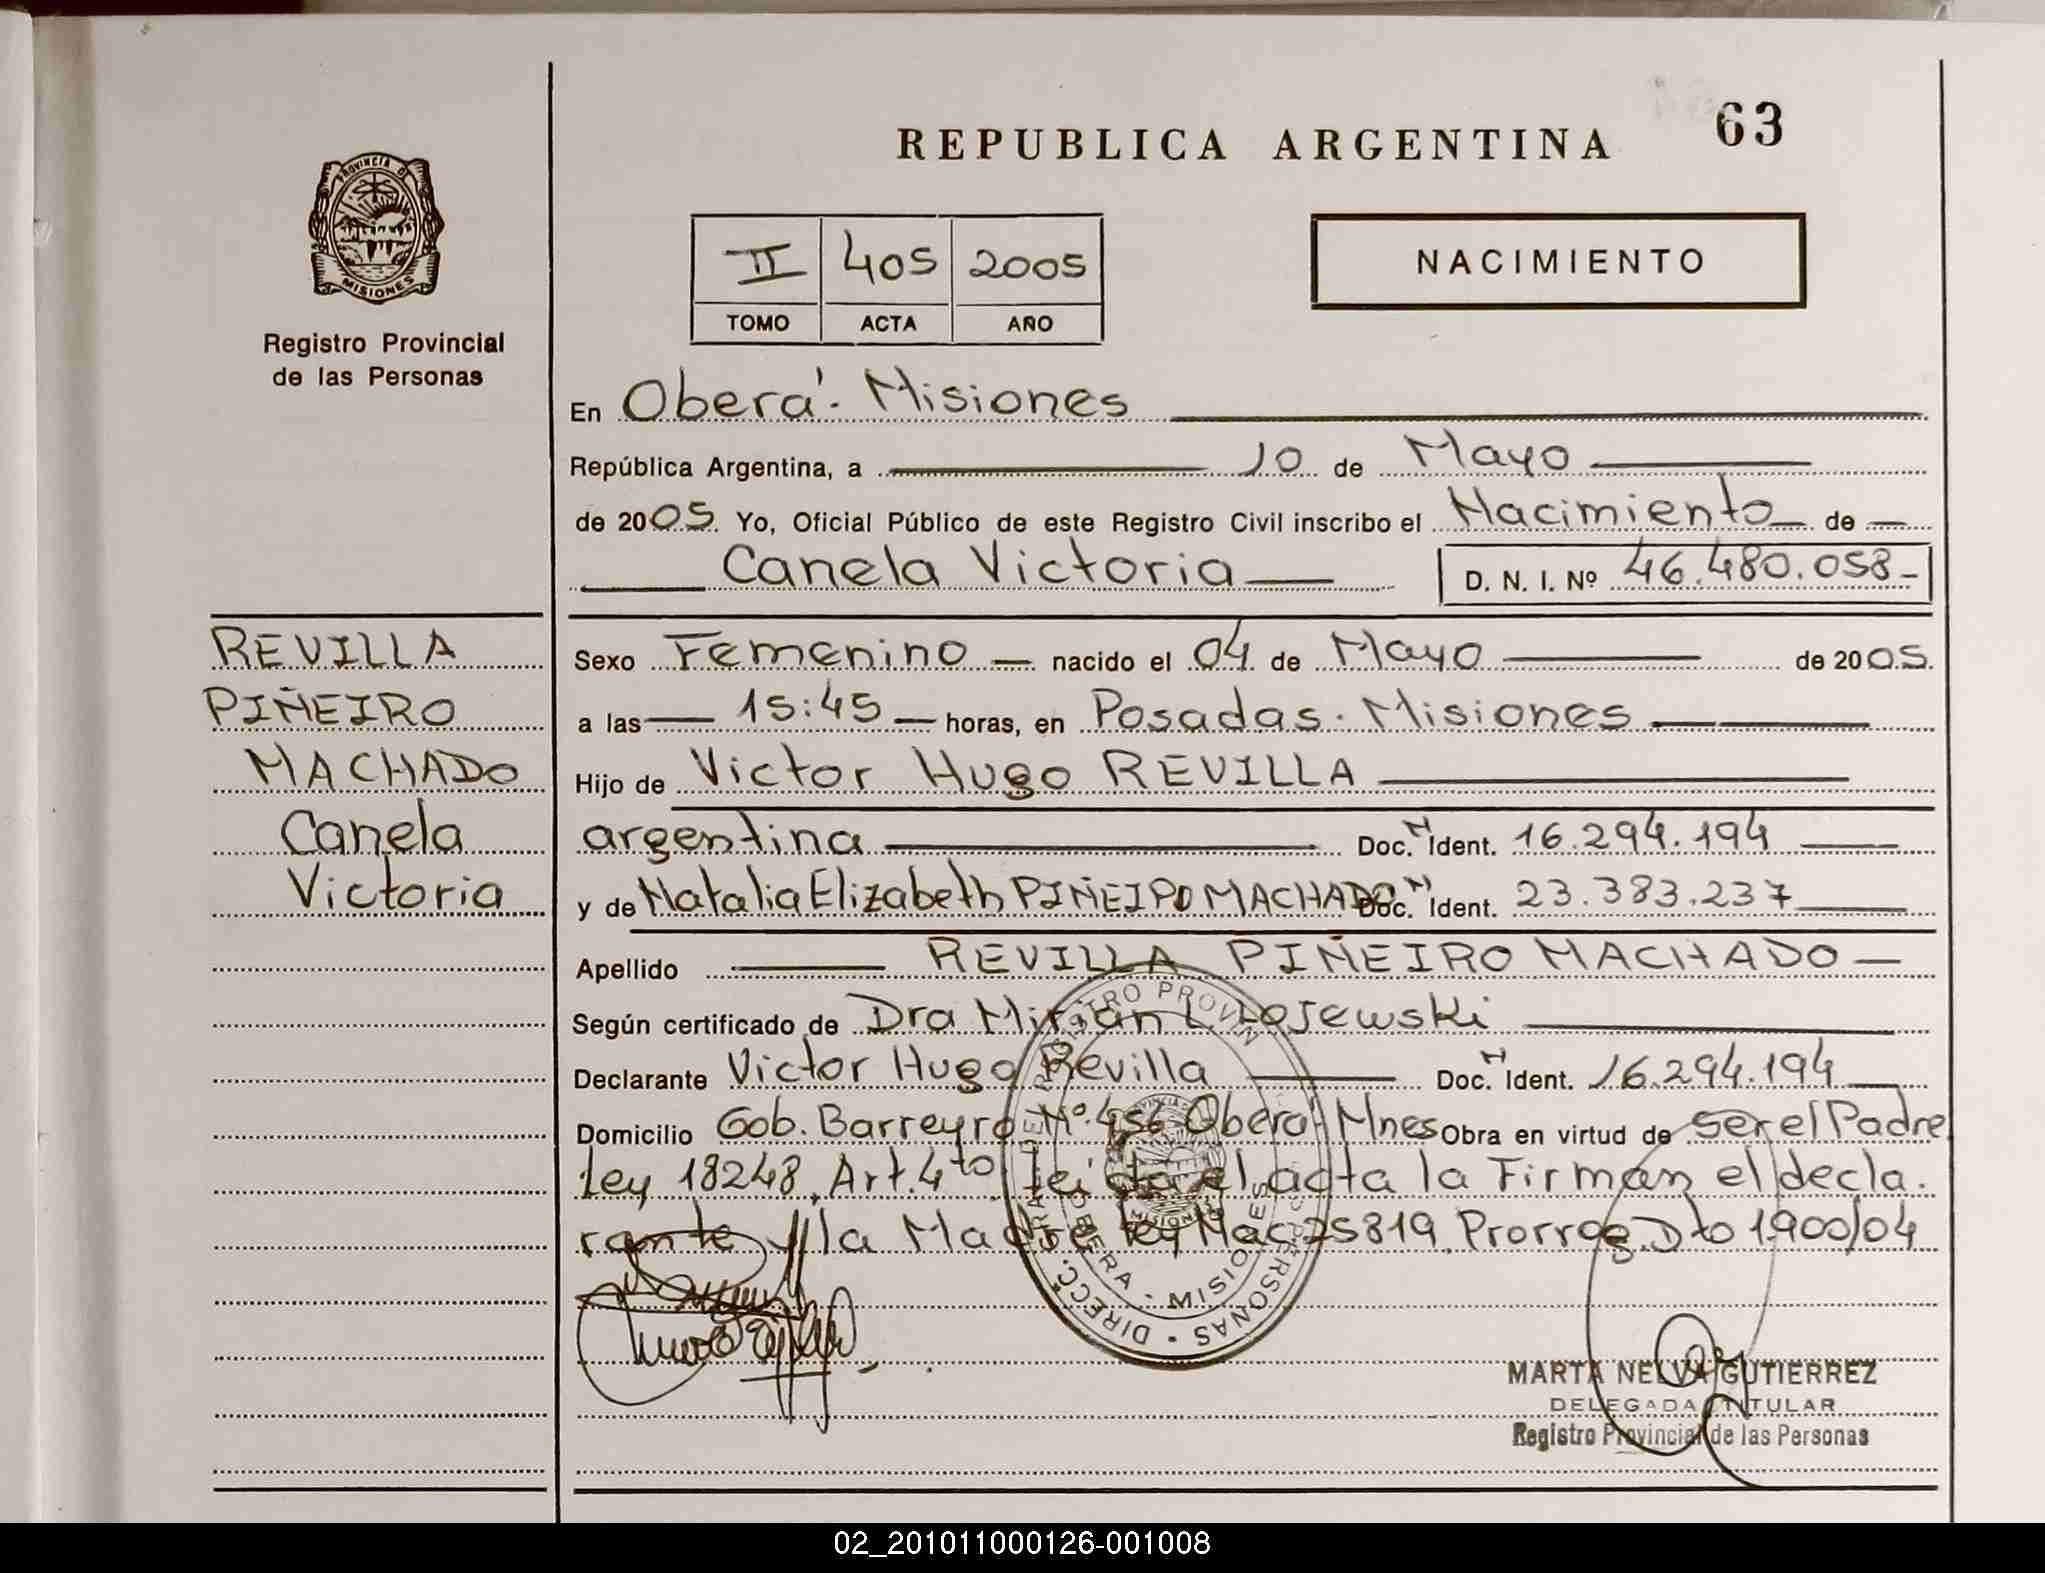 REPUBLICA ARGENTINA 63
PROVINCIA DE
MISIONES
Registro Provincial
de las Personas
II 405 2005
TOMO ACTA AÑO
NACIMIENTO
En Oberá - Misiones
República Argentina, a 10 de Mayo
de 2005 Yo, Oficial Público de este Registro Civil inscribo el Nacimiento de
Canela Victoria D. N. I. Nº 46.480.058-
REVILLA
PIÑEIRO
MACHADO
Canela
Victoria
Sexo Femenino nacido el 04 de Mayo de 2005.
a las 15:45 horas, en Posadas - Misiones
Hijo de Victor Hugo REVILLA
argentina Doc. N Ident. 16.294.194
y de Natalia Elizabeth PIÑEIRO MACHADO Doc. N Ident. 23.383.237
Apellido REVILLA PIÑEIRO MACHADO
Según certificado de Dra Mirian L. Lojewski
Declarante Victor Hugo Revilla Doc. N Ident. 16.294.194
Domicilio Gob. Barreyro Nº 456 Oberá - Mnes Obra en virtud de ser el Padre
Ley 18248, Art. 4to Leida el acta la Firman el decla-
rante y la Madre Ley Nac 25819 Prorrog. Dto 1900/04
DIRECC. GRAL. DEL REGISTRO PROVIN. DE LAS PERSONAS
OBERA - MISIONES
MARTA NELVA GUTIERREZ
DELEGADA TITULAR
Registro Provincial de las Personas
02_201011000126-001008